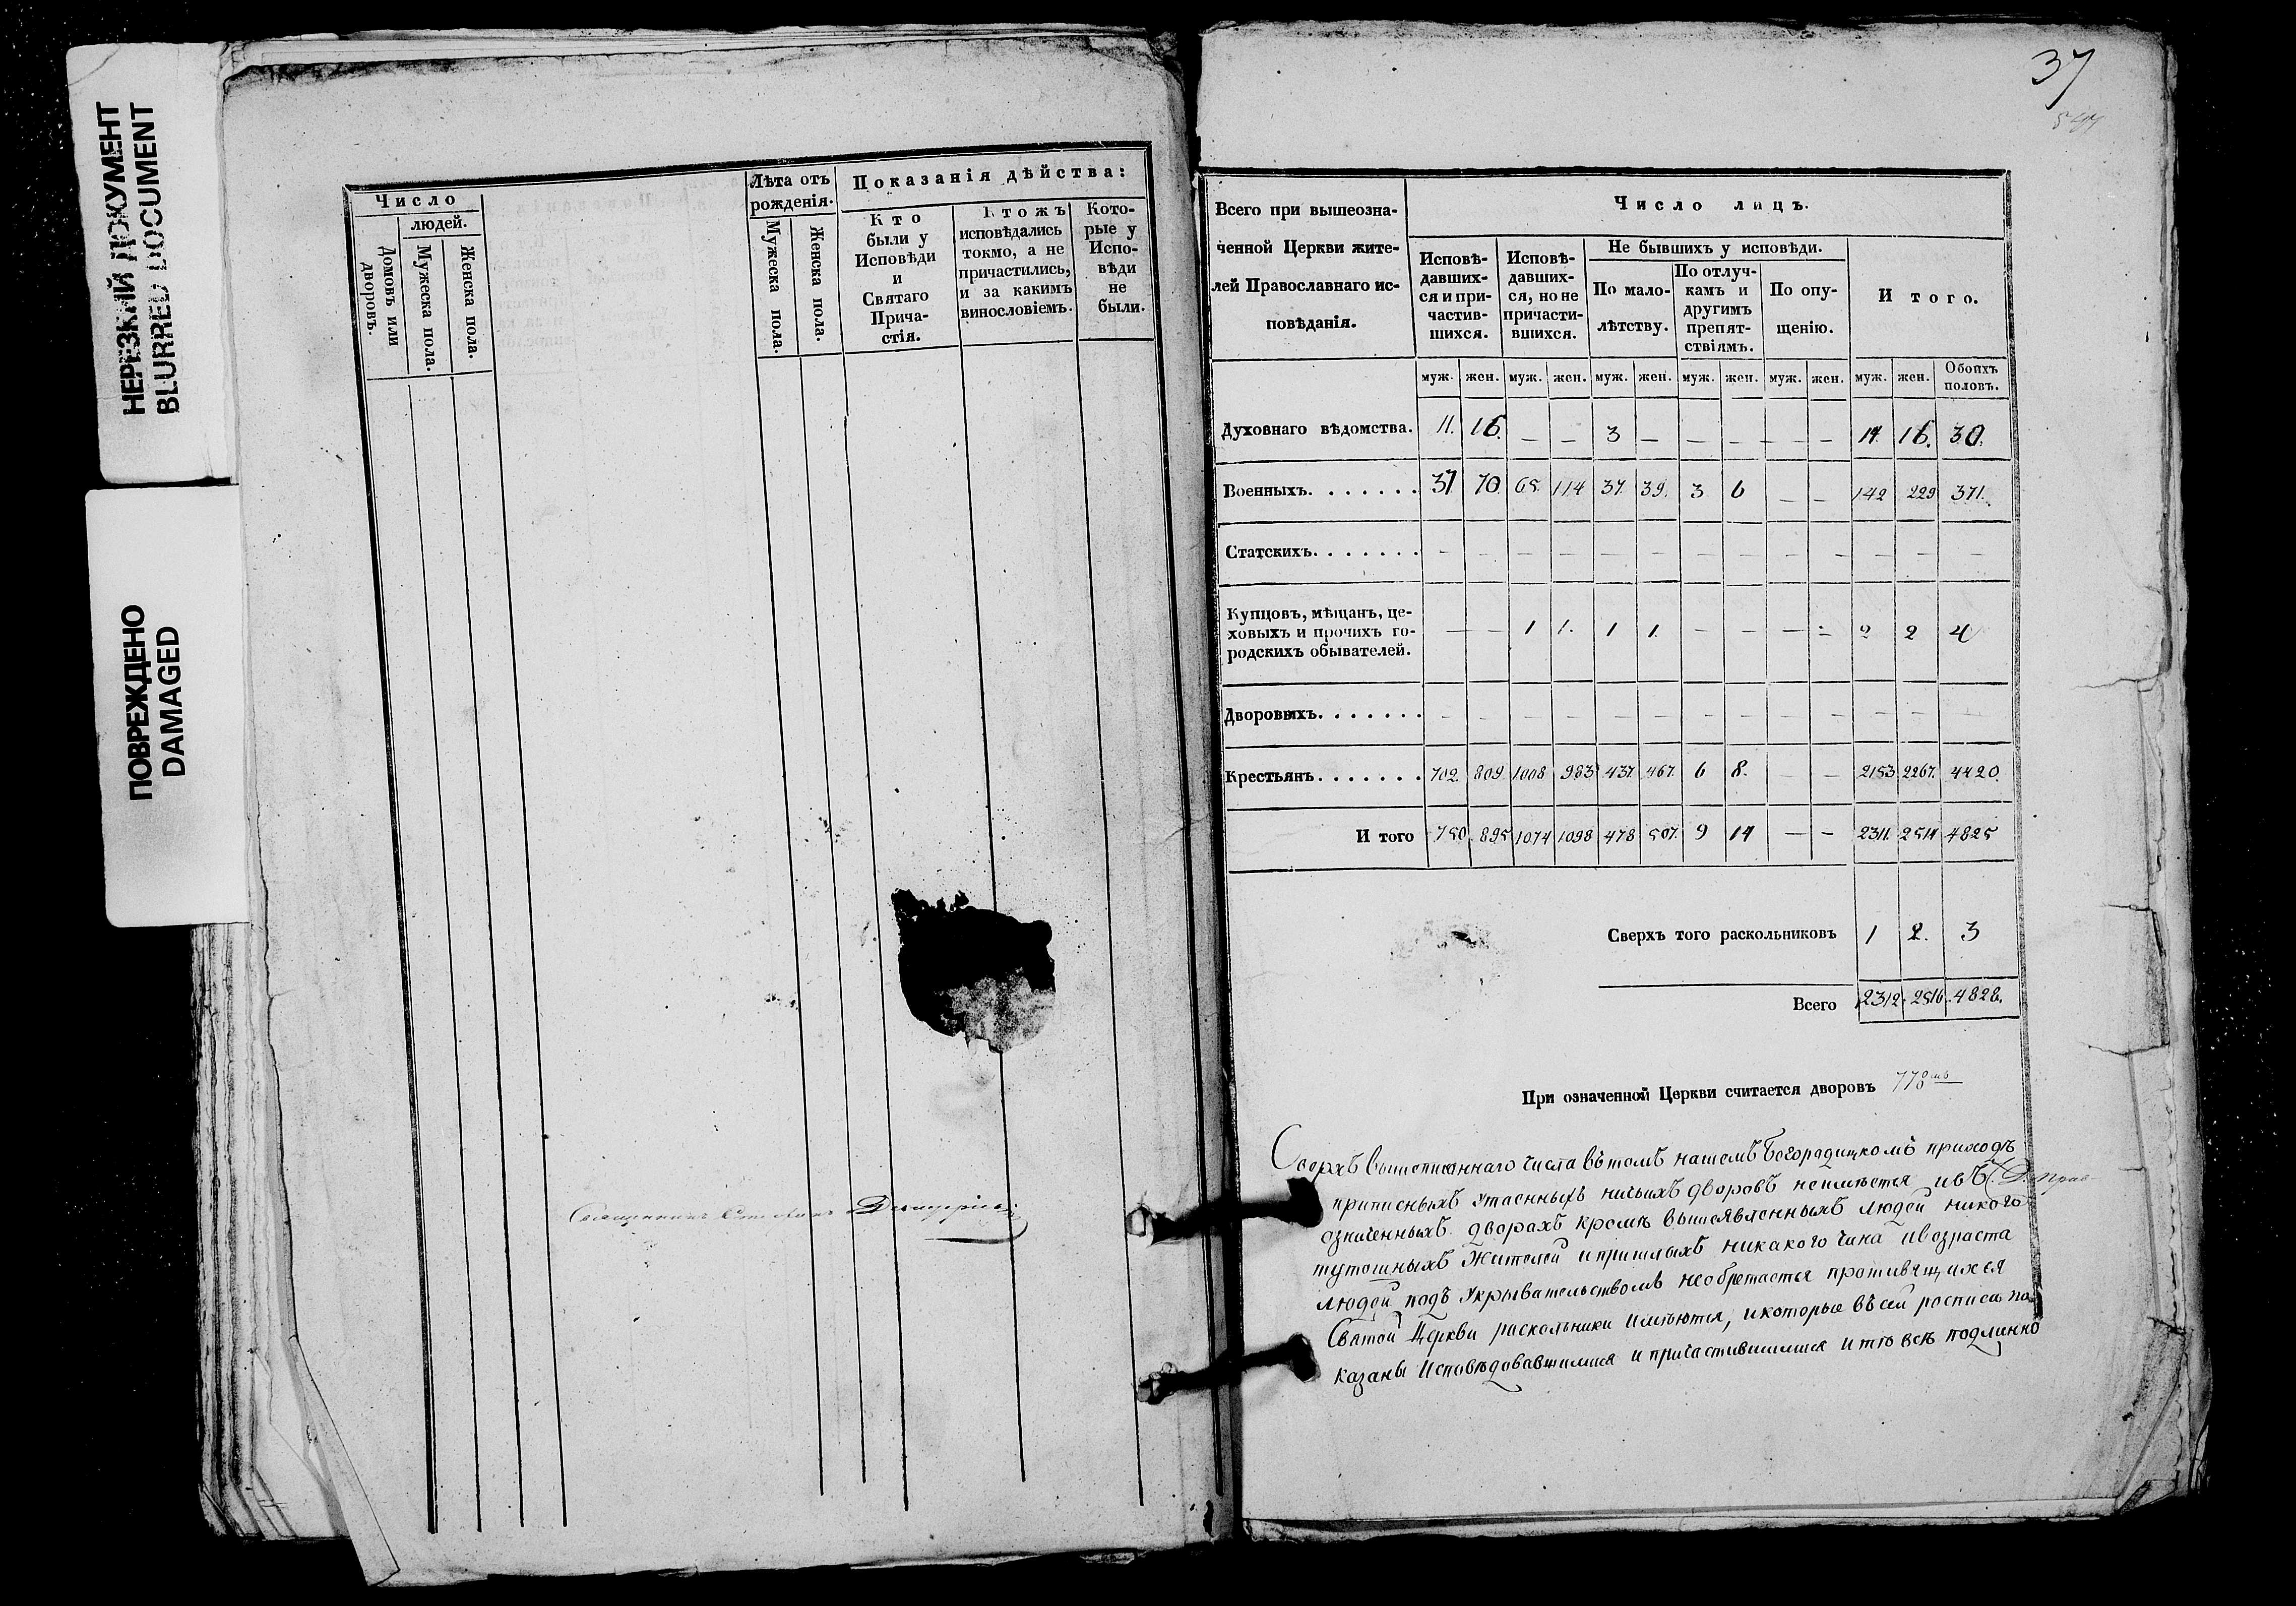 НЕРЕЗКИЙ ДОКУМЕНТ
BLURRED DOCUMENT
ПОВРЕЖДЕНО
DAMAGED
Число
людей.
Домовъ или дворовъ.
Мужеска пола.
Женска пола.
Лѣта отъ рожденія.
Мужеска пола.
Женска пола.
Показанія дѣйства:
Кто были у Исповѣди и Святаго Прича-стія.
Ктожъ исповѣдались токмо, а не причастились, и за какимъ винословіемъ.
Кото-рые у Испо-вѣди не были.
Священникъ
37
Всего при вышеозна-
ченной Церкви жите-
лей Православнаго ис-
повѣданія.
Число лицъ.
Исповѣ-давших-ся и при-частив-шихся.
Исповѣ-давших-ся, но не причасти-вшихся.
Не бывшихъ у исповѣди.
По мало-лѣтству.
По отлуч-камъ и другимъ препят-ствіямъ.
По опу-щенію.
И того.
муж. жен. муж. жен. муж. жен. муж. жен. муж. жен. муж. жен. Обоихъ половъ.
Духовнаго вѣдомства. 11. 16. — — 3 — — — — — 14. 16. 30.
Военныхъ. . . . . . . 37 70. 65. 114 37. 39. 3 6 — — 142 229 371.
Статскихъ. . . . . . . — — — — — — — — — — — — —
Купцовъ, мѣщанъ, це-
ховыхъ и прочихъ го-
родскихъ обывателей. — — 1 1. 1 1. — — — — 2 2 4
Дворовыхъ. . . . . . . — — — — — — — — — — — — —
Крестьянъ. . . . . . . 702 809 1008 983 437. 467. 6 8. — — 2153 2267. 4420.
И того 750. 895 1074 1098 478 507. 9 14 — — 2311. 2514 4825
Сверхъ того раскольниковъ 1 2. 3
Всего 2312. 2516. 4828.
При означенной Церкви считается дворовъ 778
Сверхъ вышеписаннаго числа въ томъ нашемъ Богородицкомъ приходѣ
приписныхъ утаенныхъ ничьихъ дворовъ неимѣется ивъ
означенныхъ дворахъ кромѣ вышеявленныхъ людей никого
тутошныхъ Жителей и пришлыхъ никакого чина ивозраста
людей подъ Укрывательствомъ необретается противящихся
Святой Церкви раскольники имѣются, икоторые въ сей росписи по-
казаны Исповѣдовавшимися и причастившимися и то всѣ подлинно